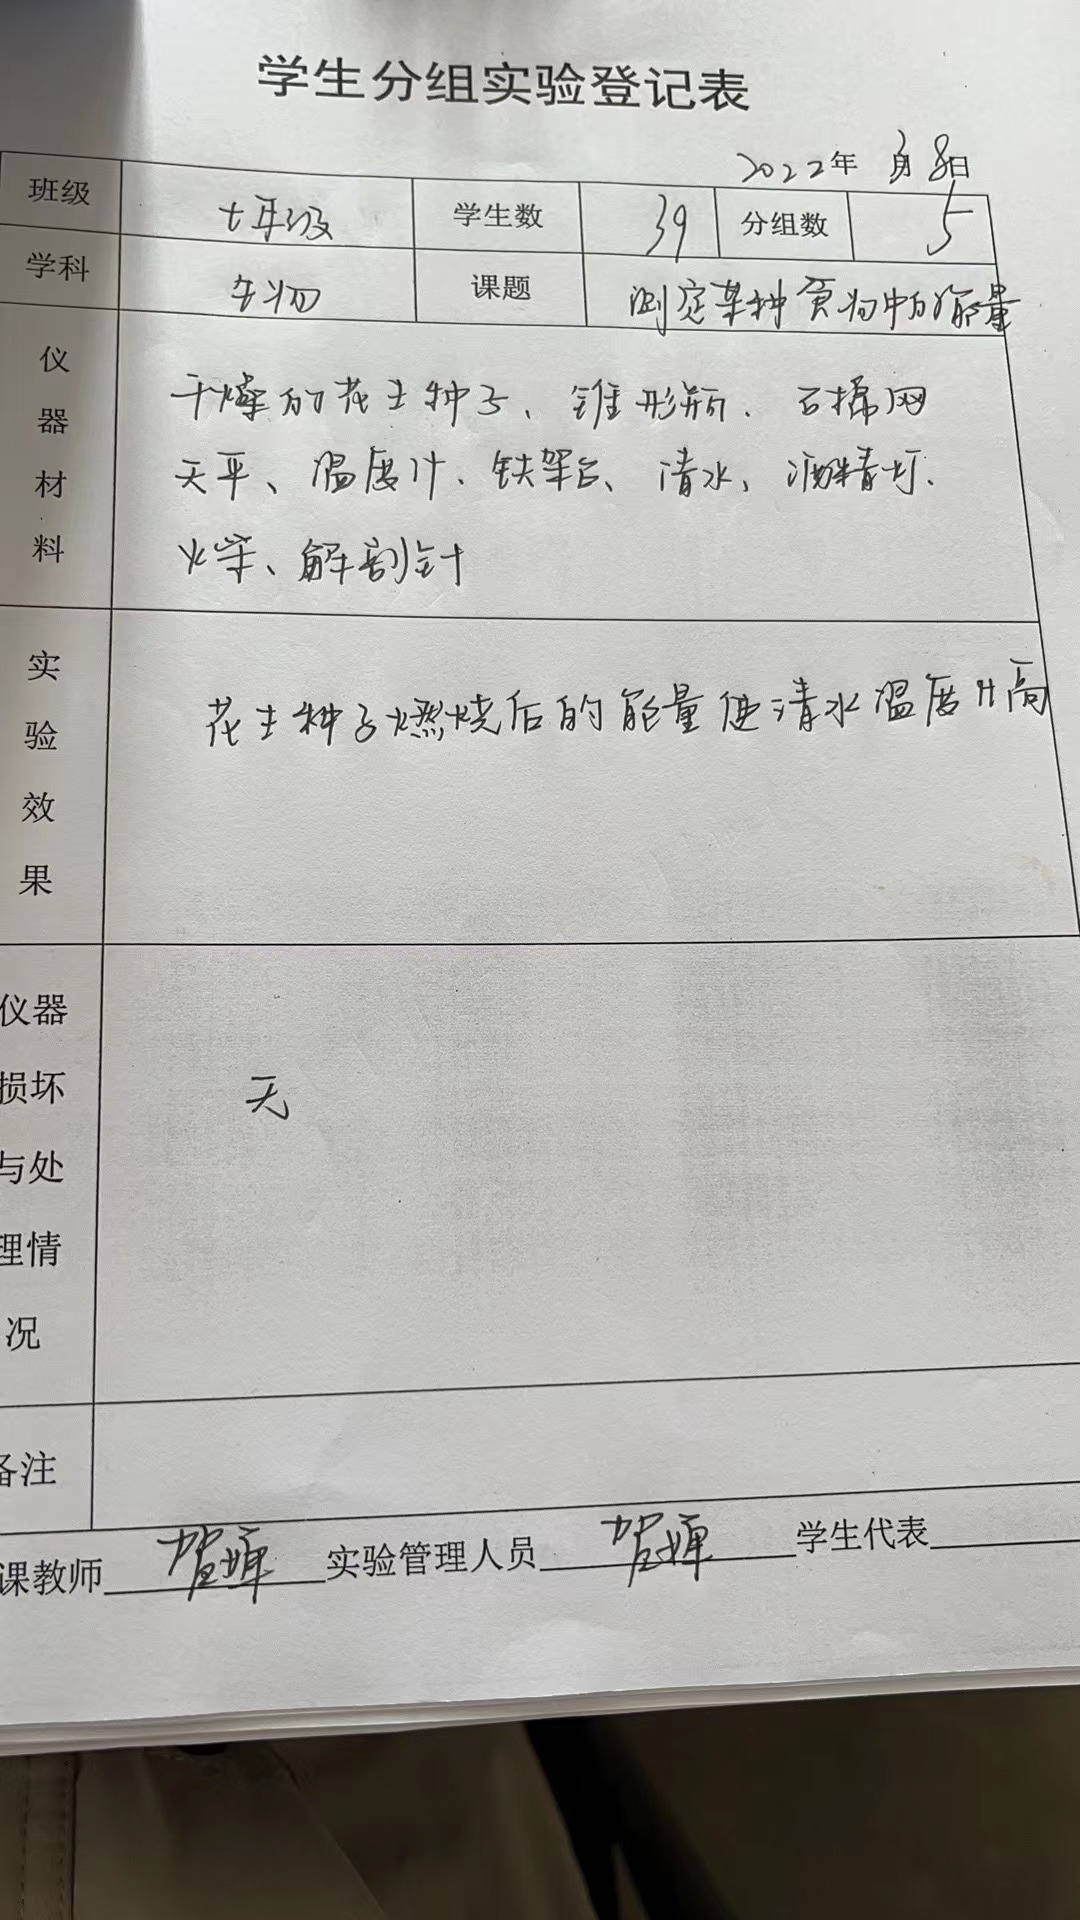 学生分组实验登记表
2022年 3月8日
班级 七年级 学生数 39 分组数 5
学科 生物 课题 测定某种食物中的能量
仪器材料
干燥的花生种子、锥形瓶、石棉网
天平、温度计、铁架台、清水、酒精灯、
火柴、解剖针
实验效果
花生种子燃烧后的能量使清水温度升高
仪器
损坏
与处
理情
况
无
备注
课教师 实验管理人员 学生代表